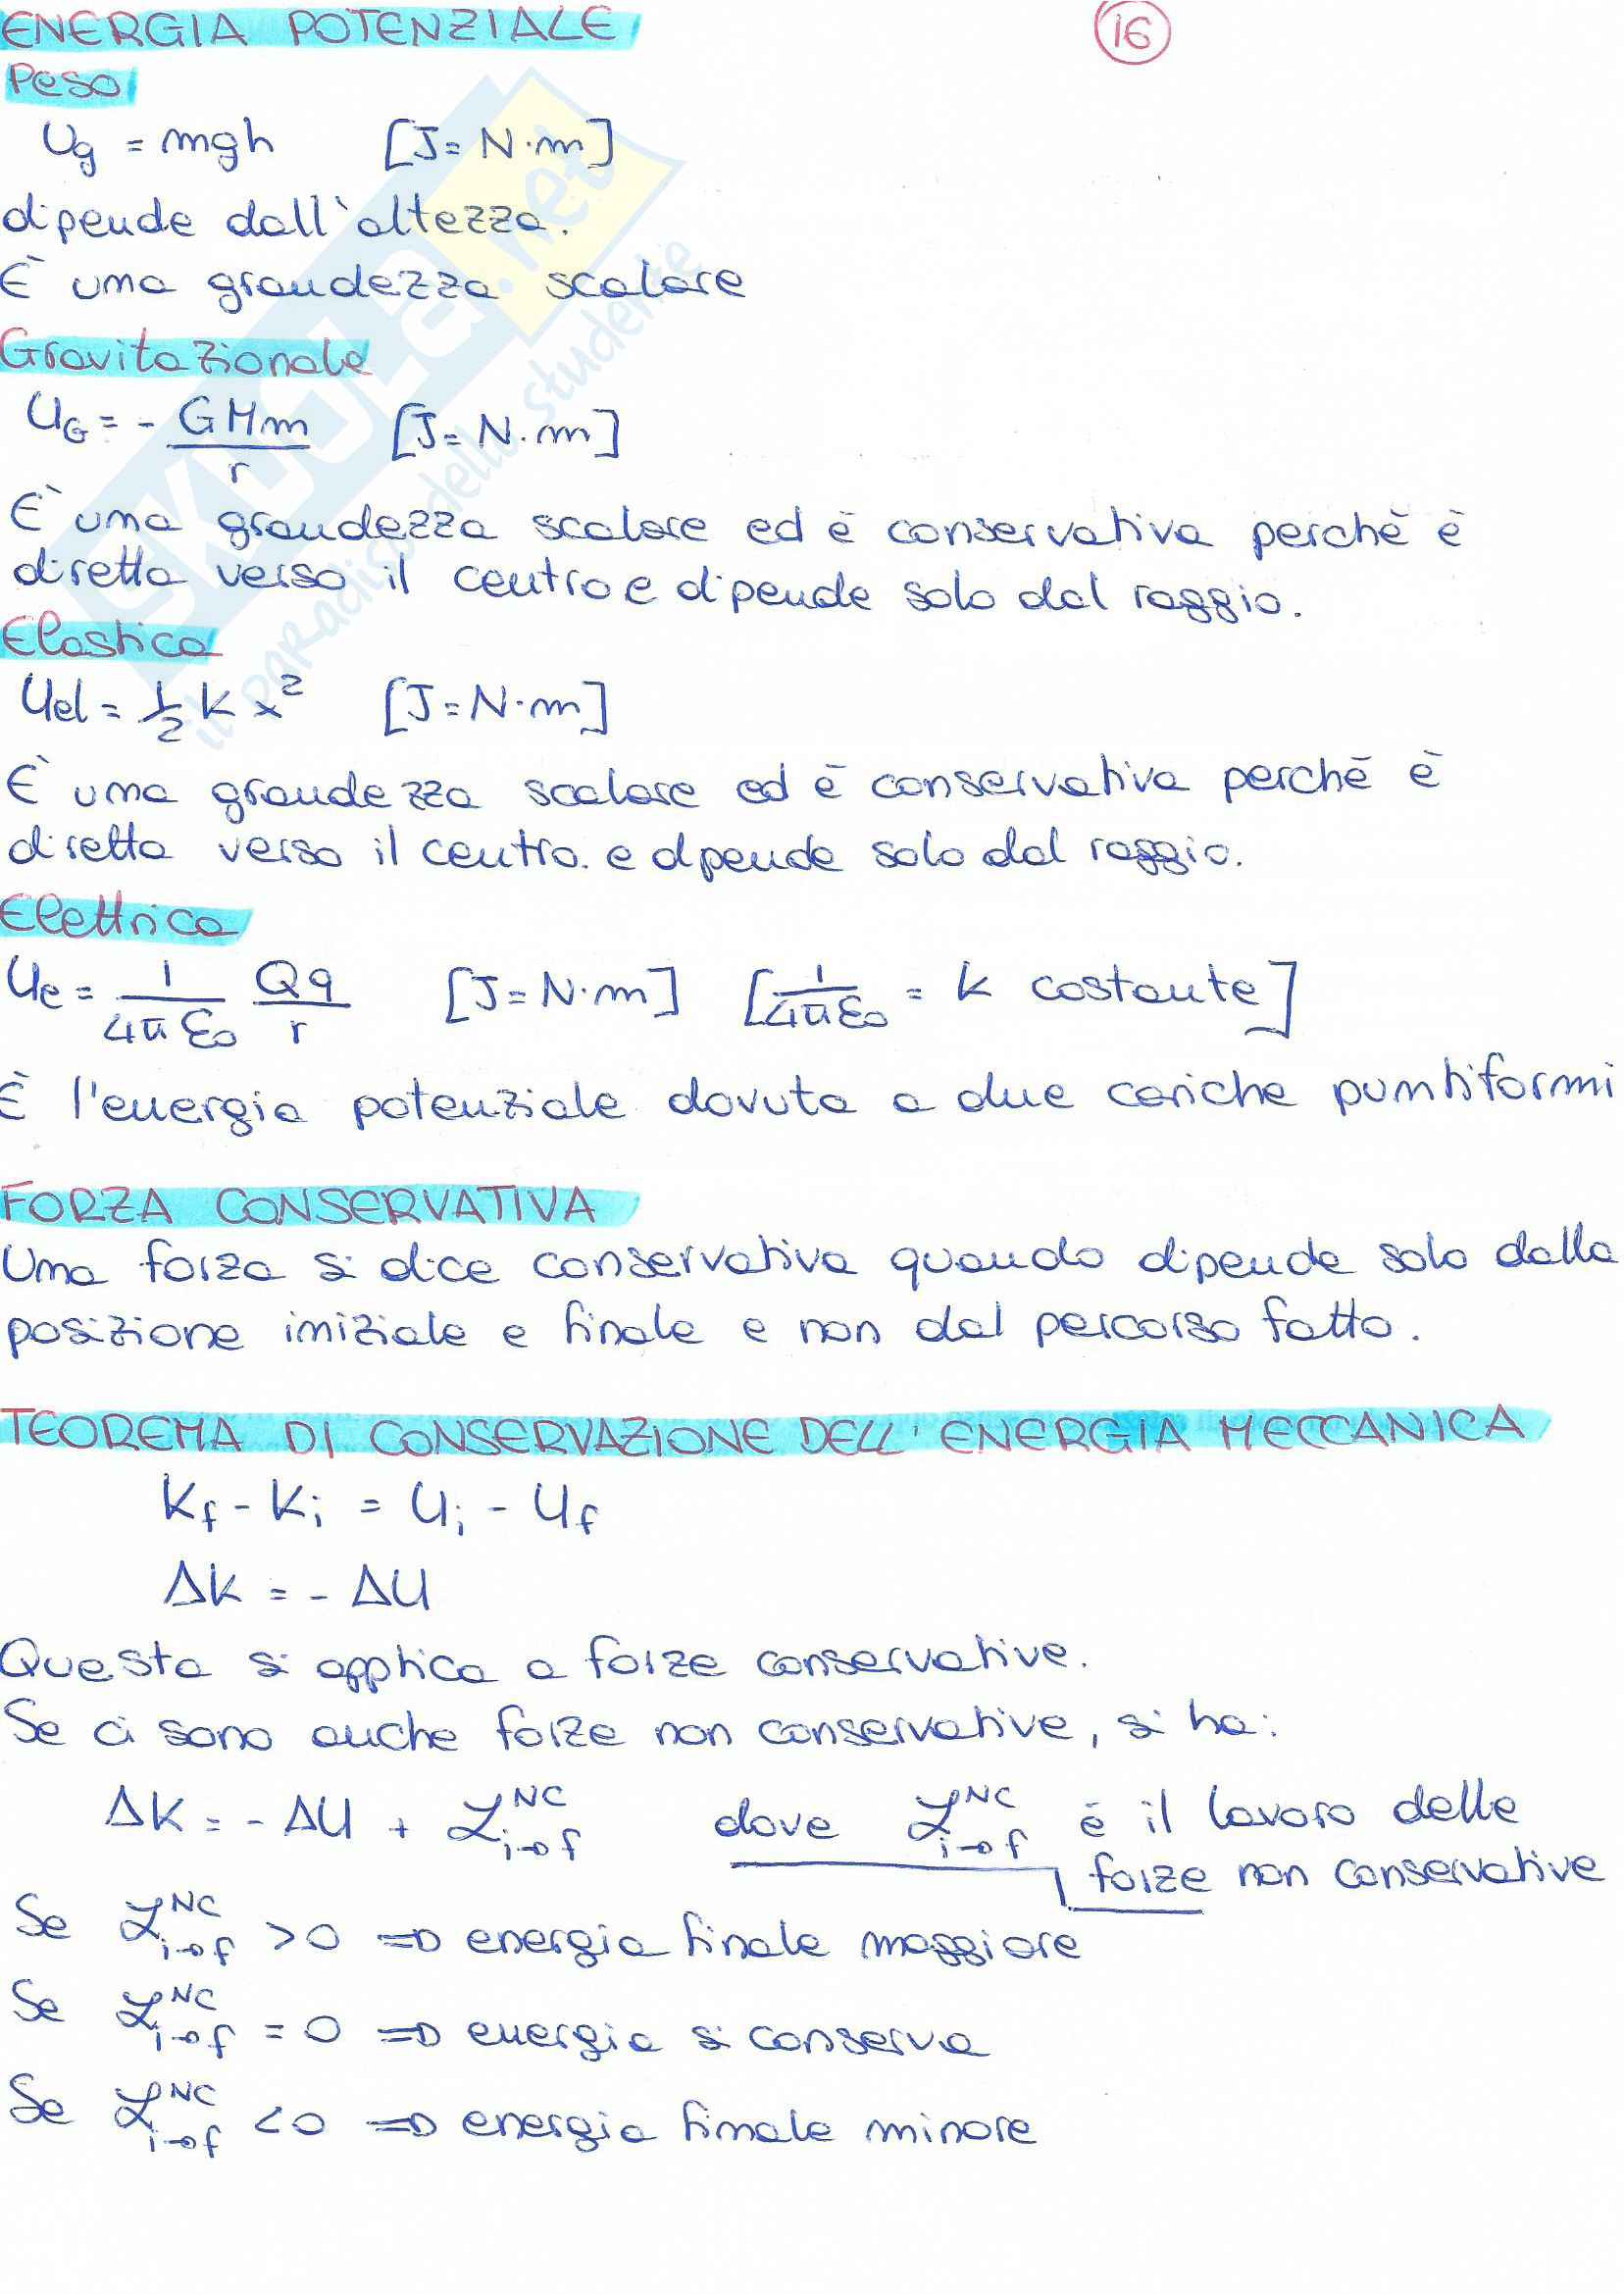 ENERGIA POTENZIALE
16
Peso
Ug = mgh [J = N·m]
dipende dall'altezza.
È una grandezza scalare
Gravitazionale
UG = - GMm/r [J = N·m]
È una grandezza scalare ed è conservativa perchè è
diretta verso il centro e dipende solo dal raggio.
Elastica
Uel = 1/2 k x² [J = N·m]
È una grandezza scalare ed è conservativa perchè è
diretta verso il centro. e dipende solo dal raggio.
Elettrica
Ue = 1/4πε0 Qq/r [J = N·m] [1/4πε0 = k costante]
È l'energia potenziale dovuta a due cariche puntiformi
FORZA CONSERVATIVA
Una forza si dice conservativa quando dipende solo dalla
posizione iniziale e finale e non dal percorso fatto.
TEOREMA DI CONSERVAZIONE DELL'ENERGIA MECCANICA
Kf - Ki = Ui - Uf
ΔK = - ΔU
Questa si applica a forze conservative.
Se ci sono anche forze non conservative, si ha:
ΔK = - ΔU + ℒ^NC i→f dove ℒ^NC i→f è il lavoro delle
forze non conservative
Se ℒ^NC i→f > 0 ⇒ energia finale maggiore
Se ℒ^NC i→f = 0 ⇒ energia si conserva
Se ℒ^NC i→f < 0 ⇒ energia finale minore
SKUOLA.net
il paradiso dello studente